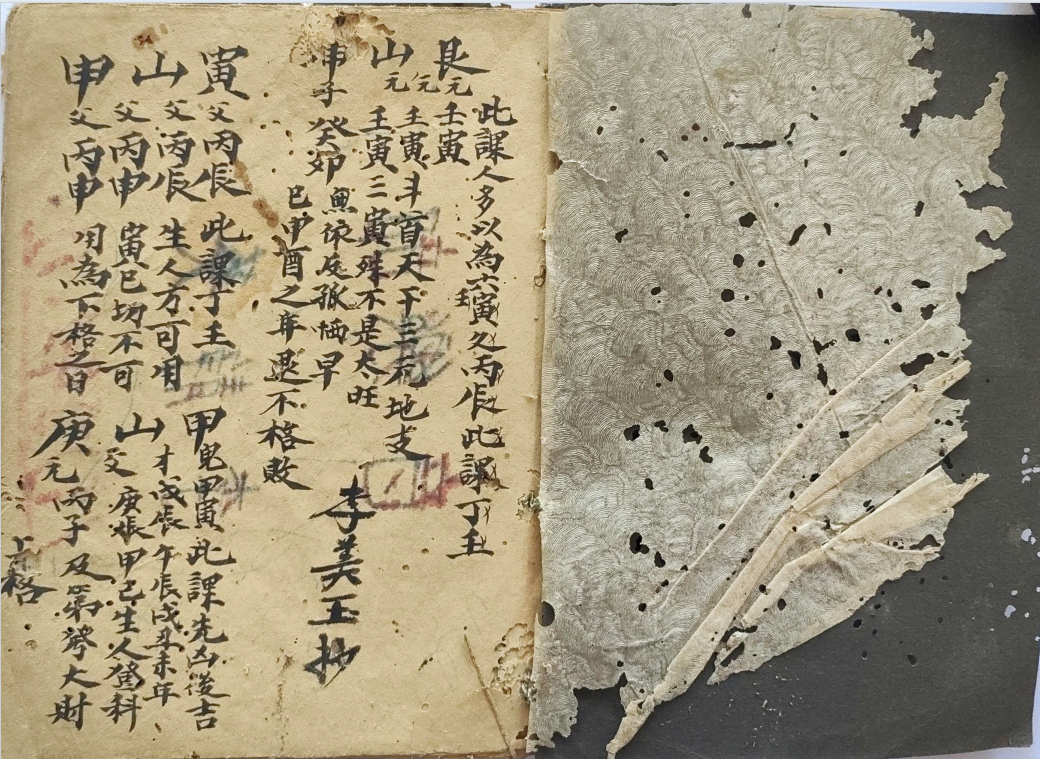 此課人多以為六寅久丙辰此課丁壬
艮元壬寅
元壬寅斗首天干三元地支
山元壬寅三寅殊不是太旺
子癸卯無依庭孤恓早
巳申酉之年退不格敗
李美玉抄
寅父丙辰此課丁壬
山父丙辰生人方可用
父丙申寅巳切不可
申父丙申用為下格之日
甲鬼甲寅此課先凶後吉
才戊辰午辰戌丑未年
山父庚辰甲己生人登科
庚元丙子及第發大財
上格